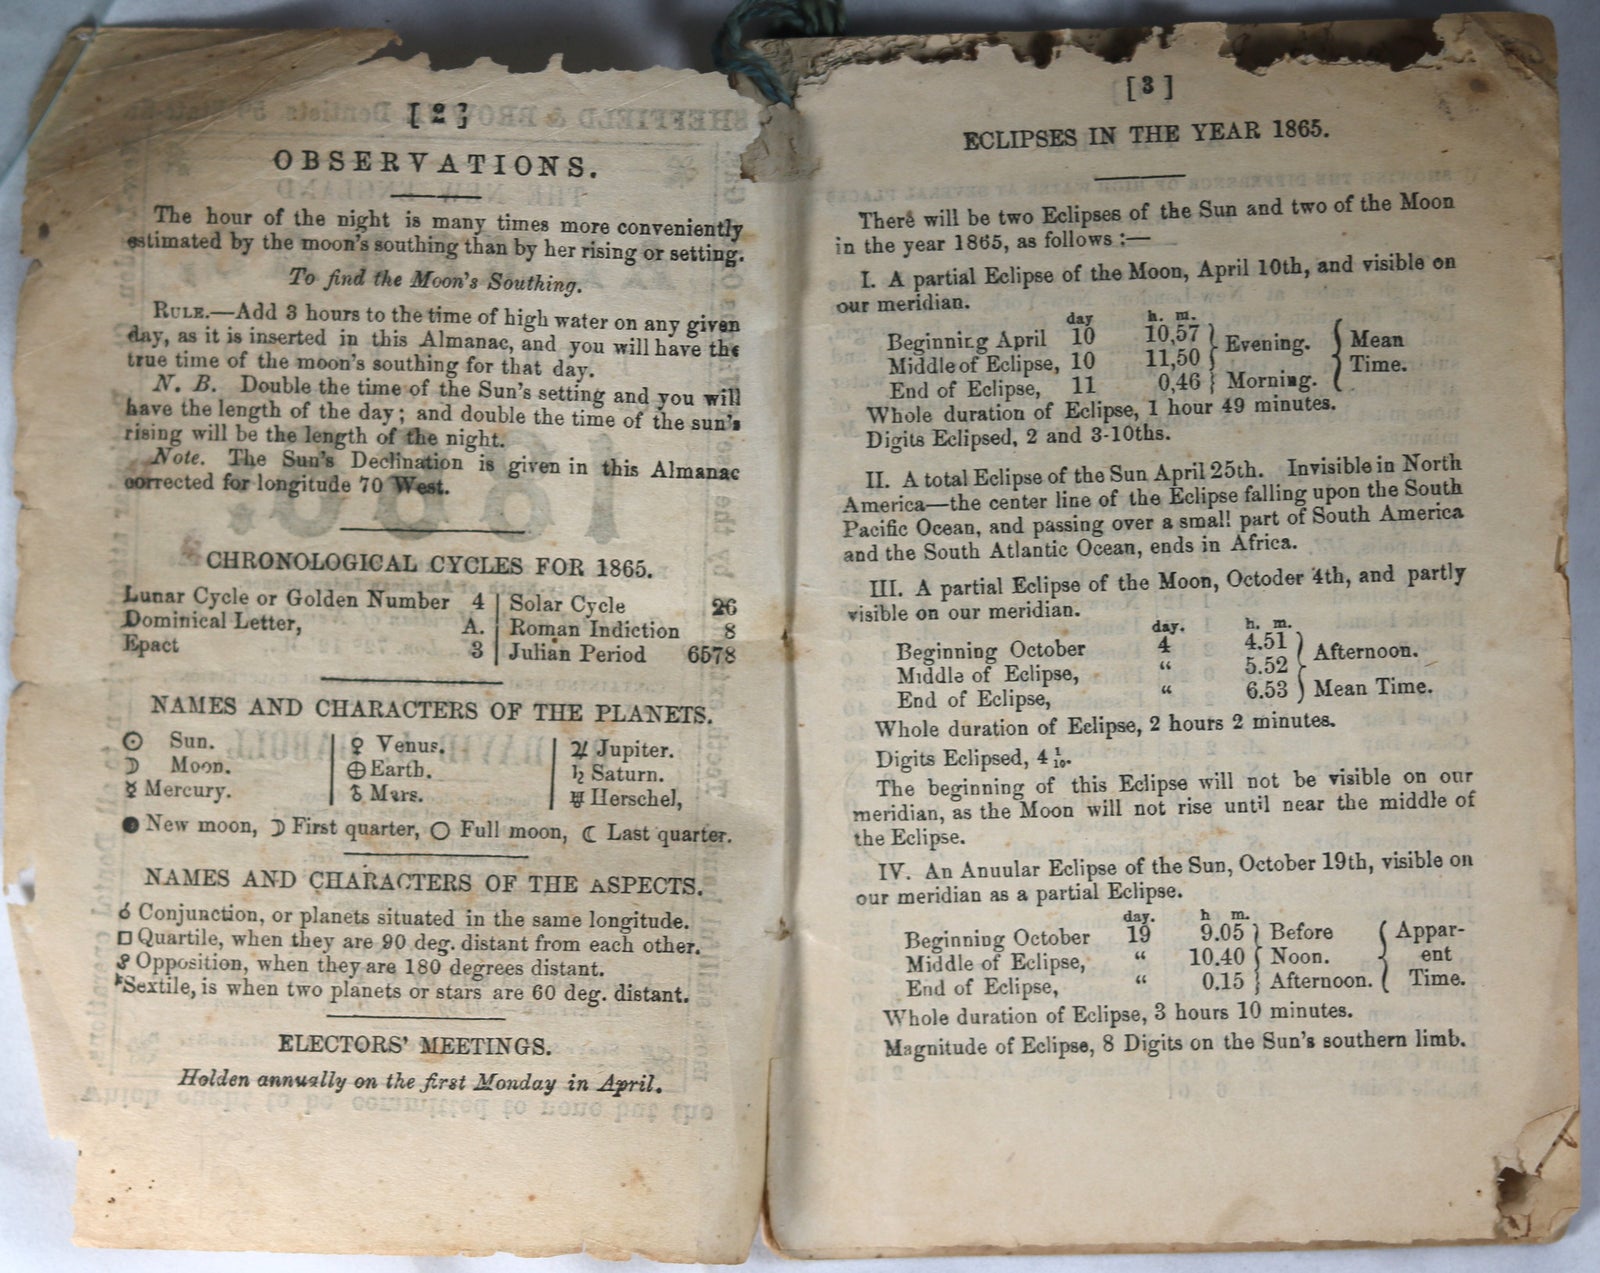 [2]
OBSERVATIONS.
The hour of the night is many times more conveniently
estimated by the moon's southing than by her rising or setting.
To find the Moon's Southing.
RULE.—Add 3 hours to the time of high water on any given
day, as it is inserted in this Almanac, and you will have the
true time of the moon's southing for that day.
N. B. Double the time of the Sun's setting and you will
have the length of the day; and double the time of the sun's
rising will be the length of the night.
Note. The Sun's Declination is given in this Almanac
corrected for longitude 70 West.
CHRONOLOGICAL CYCLES FOR 1865.
Lunar Cycle or Golden Number 4 | Solar Cycle 26
Dominical Letter, A. | Roman Indiction 8
Epact 3 | Julian Period 6578
NAMES AND CHARACTERS OF THE PLANETS.
☉ Sun. | ♀ Venus. | ♃ Jupiter.
☽ Moon. | ⊕ Earth. | ♄ Saturn.
☿ Mercury. | ♂ Mars. | ♅ Herschel,
● New moon, ☽ First quarter, ○ Full moon, ☾ Last quarter.
NAMES AND CHARACTERS OF THE ASPECTS.
☌ Conjunction, or planets situated in the same longitude.
□ Quartile, when they are 90 deg. distant from each other.
☍ Opposition, when they are 180 degrees distant.
* Sextile, is when two planets or stars are 60 deg. distant.
ELECTORS' MEETINGS.
Holden annually on the first Monday in April.
[3]
ECLIPSES IN THE YEAR 1865.
There will be two Eclipses of the Sun and two of the Moon
in the year 1865, as follows :—
I. A partial Eclipse of the Moon, April 10th, and visible on
our meridian.
day h. m.
Beginning April 10 10,57 } Evening. { Mean
Middle of Eclipse, 10 11,50 } { Time.
End of Eclipse, 11 0,46 } Morning. {
Whole duration of Eclipse, 1 hour 49 minutes.
Digits Eclipsed, 2 and 3-10ths.
II. A total Eclipse of the Sun April 25th. Invisible in North
America—the center line of the Eclipse falling upon the South
Pacific Ocean, and passing over a small part of South America
and the South Atlantic Ocean, ends in Africa.
III. A partial Eclipse of the Moon, Octoder 4th, and partly
visible on our meridian.
day. h. m.
Beginning October 4 4.51 } Afternoon.
Middle of Eclipse, “ 5.52 }
End of Eclipse, “ 6.53 } Mean Time.
Whole duration of Eclipse, 2 hours 2 minutes.
Digits Eclipsed, 4 1/10.
The beginning of this Eclipse will not be visible on our
meridian, as the Moon will not rise until near the middle of
the Eclipse.
IV. An Anuular Eclipse of the Sun, October 19th, visible on
our meridian as a partial Eclipse.
day. h m.
Beginning October 19 9.05 } Before { Appar-
Middle of Eclipse, “ 10.40 } Noon. { ent
End of Eclipse, “ 0.15 } Afternoon. { Time.
Whole duration of Eclipse, 3 hours 10 minutes.
Magnitude of Eclipse, 8 Digits on the Sun's southern limb.